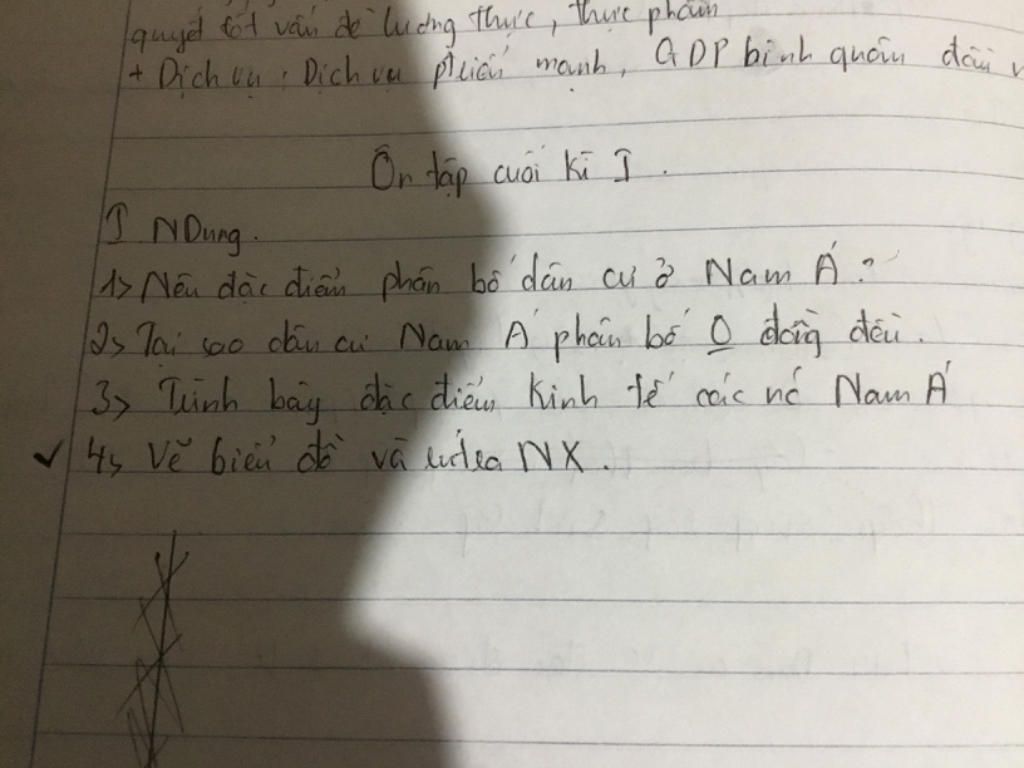 quyết tốt vấn đề lương thực, thực phẩm
+ Dịch vụ: Dịch vụ ptriển mạnh, GDP bình quân đầu
Ôn tập cuối kì I.
I NDung.
1> Nêu đặc điểm phân bố dân cư ở Nam Á?
2> Tại sao dân cư Nam Á phân bố O đồng đều.
3> Trình bày đặc điểm kinh tế các nc Nam Á
4> Vẽ biểu đồ và NX.